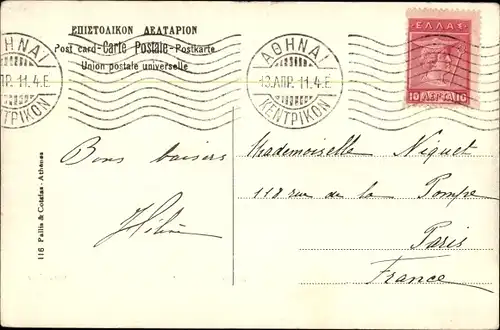 ΕΠΙΣΤΟΛΙΚΟΝ ΔΕΛΤΑΡΙΟΝ
Post card-Carte Postale-Postkarte
Union postale universelle
ΑΘΗΝΑΙ
ΠΡ. 11.4.Ε
ΚΕΝΤΡΙΚΟΝ
ΑΘΗΝΑΙ
13.ΑΠΡ. 11.4.Ε
ΚΕΝΤΡΙΚΟΝ
ΕΛΛΑΣ
10 ΛΕΠΤΑ 10
Bons baisers
Mademoiselle Niquet
118 rue de la Pompe
Paris
France
116 Pallis & Cotzias - Athènes